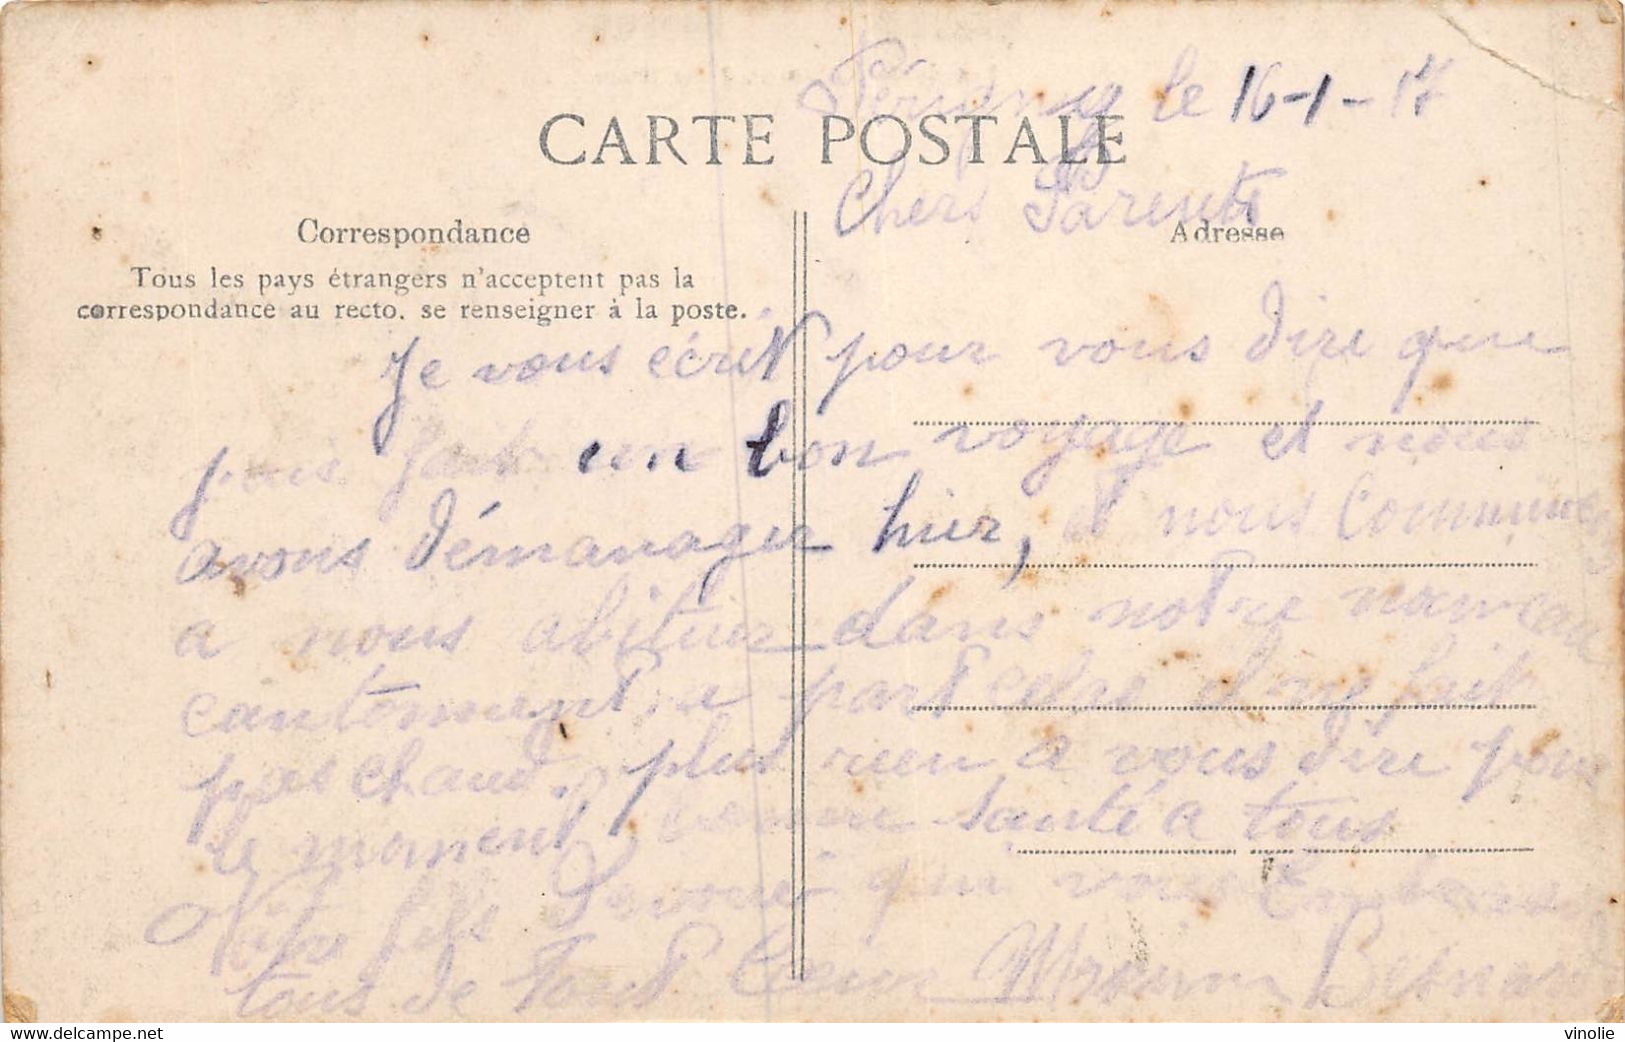 Perigny le 16-1-17
CARTE POSTALE
Chers Parents
Correspondance
Adresse
Tous les pays étrangers n'acceptent pas la
correspondance au recto. se renseigner à la poste.
Je vous écrit pour vous dire que
fait un bon voyage et nous
avons démanager hier, et nous
a nous abituer dans notre nouveau
cantonnement, a part cela il ny fait
pas chaud. plus rien a vous dire pour
le moment, bonne santé a tous
Votre fils Dévoué qui vous Embrasse
tous de tout Coeur Bernard
vinolie